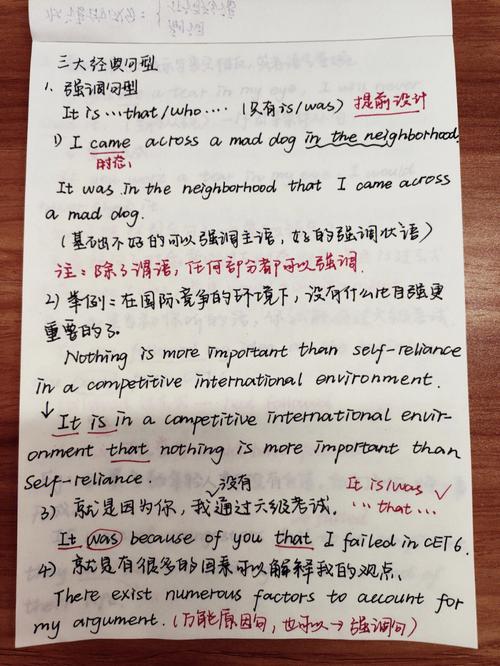 三大经典句型
1. 强调句型
It is …that/who…. (只有is/was) 提前设计
1) I came across a mad dog in the neighborhood.
时态
It was in the neighborhood that I came across
a mad dog.
(基础不好的可以强调主语,好的强调状语)
注:除了谓语,任何部分都可以强调.
2) 举例:在国际竞争的环境下,没有什么比自强更
重要的了.
Nothing is more important than self-reliance
in a competitive international environment.
↓ It is in a competitive international envir-
onment that nothing is more important than
self-reliance.
没有 It is/was ✓
3) 就是因为你,我通过六级考试. …that…
It was because of you that I failed in CET6.
4) 就是有很多的因素可以解释我的观点.
There exist numerous factors to account for
my argument. (万能原因句,也可以→强调句)